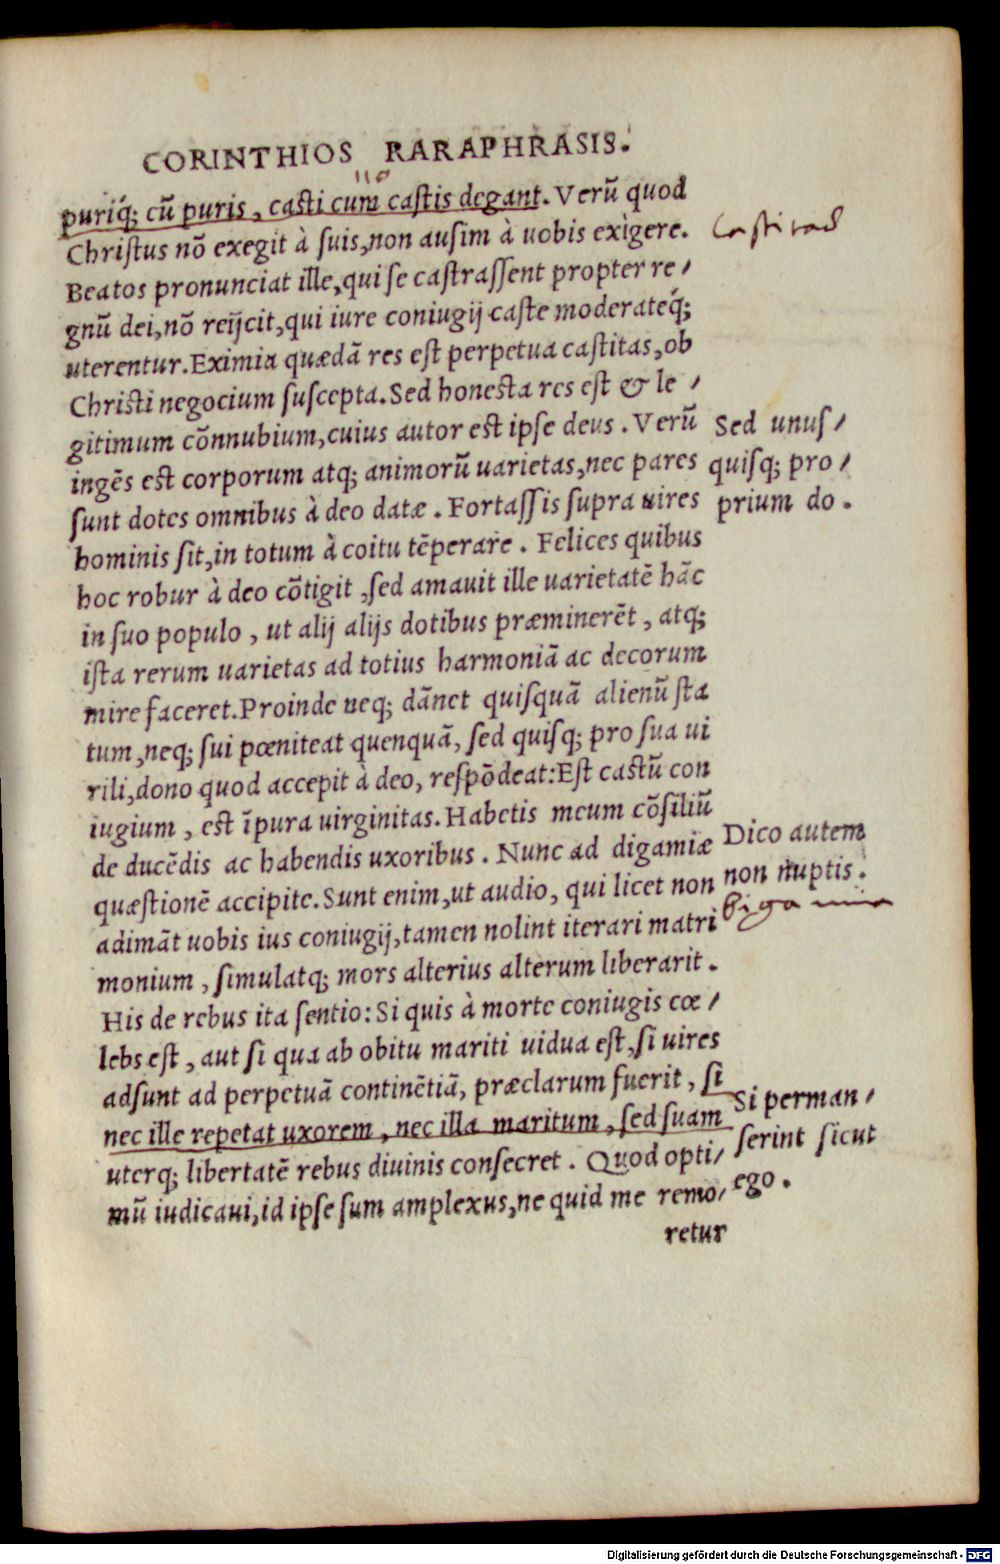 CORINTHIOS RARAPHRASIS.
110
puriq́; cũ puris, casti cum castis degant. Verũ quod
Chriſtus nõ exegit à ſuis, non auſim à uobis exìgere.
Castitas
Beatos pronunciat ille, qui ſe caſtraſſent propter re/
gnũ dei, nõ reijcit, qui iure coniugij caſte moderateq́;
uterentur. Eximia quædã res eſt perpetua caſtitas, ob
Chriſti negocium ſuſcepta. Sed honesta res eſt & le/
gitimum cõnnubium, cuius autor est ipſe deus. Verũ
Sed unuſ/
ingẽs est corporum atq; animorũ uarietas, nec pares
quiſq; pro/
ſunt dotes omnibus à deo datæ. Fortaſſis ſupra uires
prium do.
hominis ſit, in totum à coitu tẽperare. Felices quibus
hoc robur à deo cõtigit, ſed amauit ille uarietatẽ hãc
in ſuo populo, ut alij alijs dotibus præminerẽt, atq;
iſta rerum uarietas ad totius harmoniã ac decorum
mire faceret. Proinde neq; dãnet quiſquã alienũ ſta
tum, neq; ſui pœniteat quenquã, ſed quiſq; pro ſua ui
rili, dono quod accepit à deo, reſpõdeat: Eſt castũ con
iugium, est ĩpura uirginitas. Habetis meum cõſiliũ
de ducẽdis ac habendis uxoribus. Nunc ad digamiæ
Dico autem
quæſtionẽ accipite. Sunt enim, ut audio, qui licet non
non nuptis.
adimãt uobis ius coniugij, tamen nolint iterari matri
Bigamia
monium, ſimulatq; mors alterius alterum liberarit.
His de rebus ita ſentio: Si quis à morte coniugis cœ/
lebs eſt, aut ſi qua ab obitu mariti uidua eſt, ſi uires
adſunt ad perpetuã continẽtiã, præclarum fuerit, ſi
Si perman/
nec ille repetat uxorem, nec illa maritum, ſed ſuam
ſerint ſicut
uterq; libertatẽ rebus diuinis conſecret. Quod opti/
ego.
mũ iudicaui, id ipſe ſum amplexus, ne quid me remo/
retur
Digitalisierung gefördert durch die Deutsche Forschungsgemeinschaft - DFG